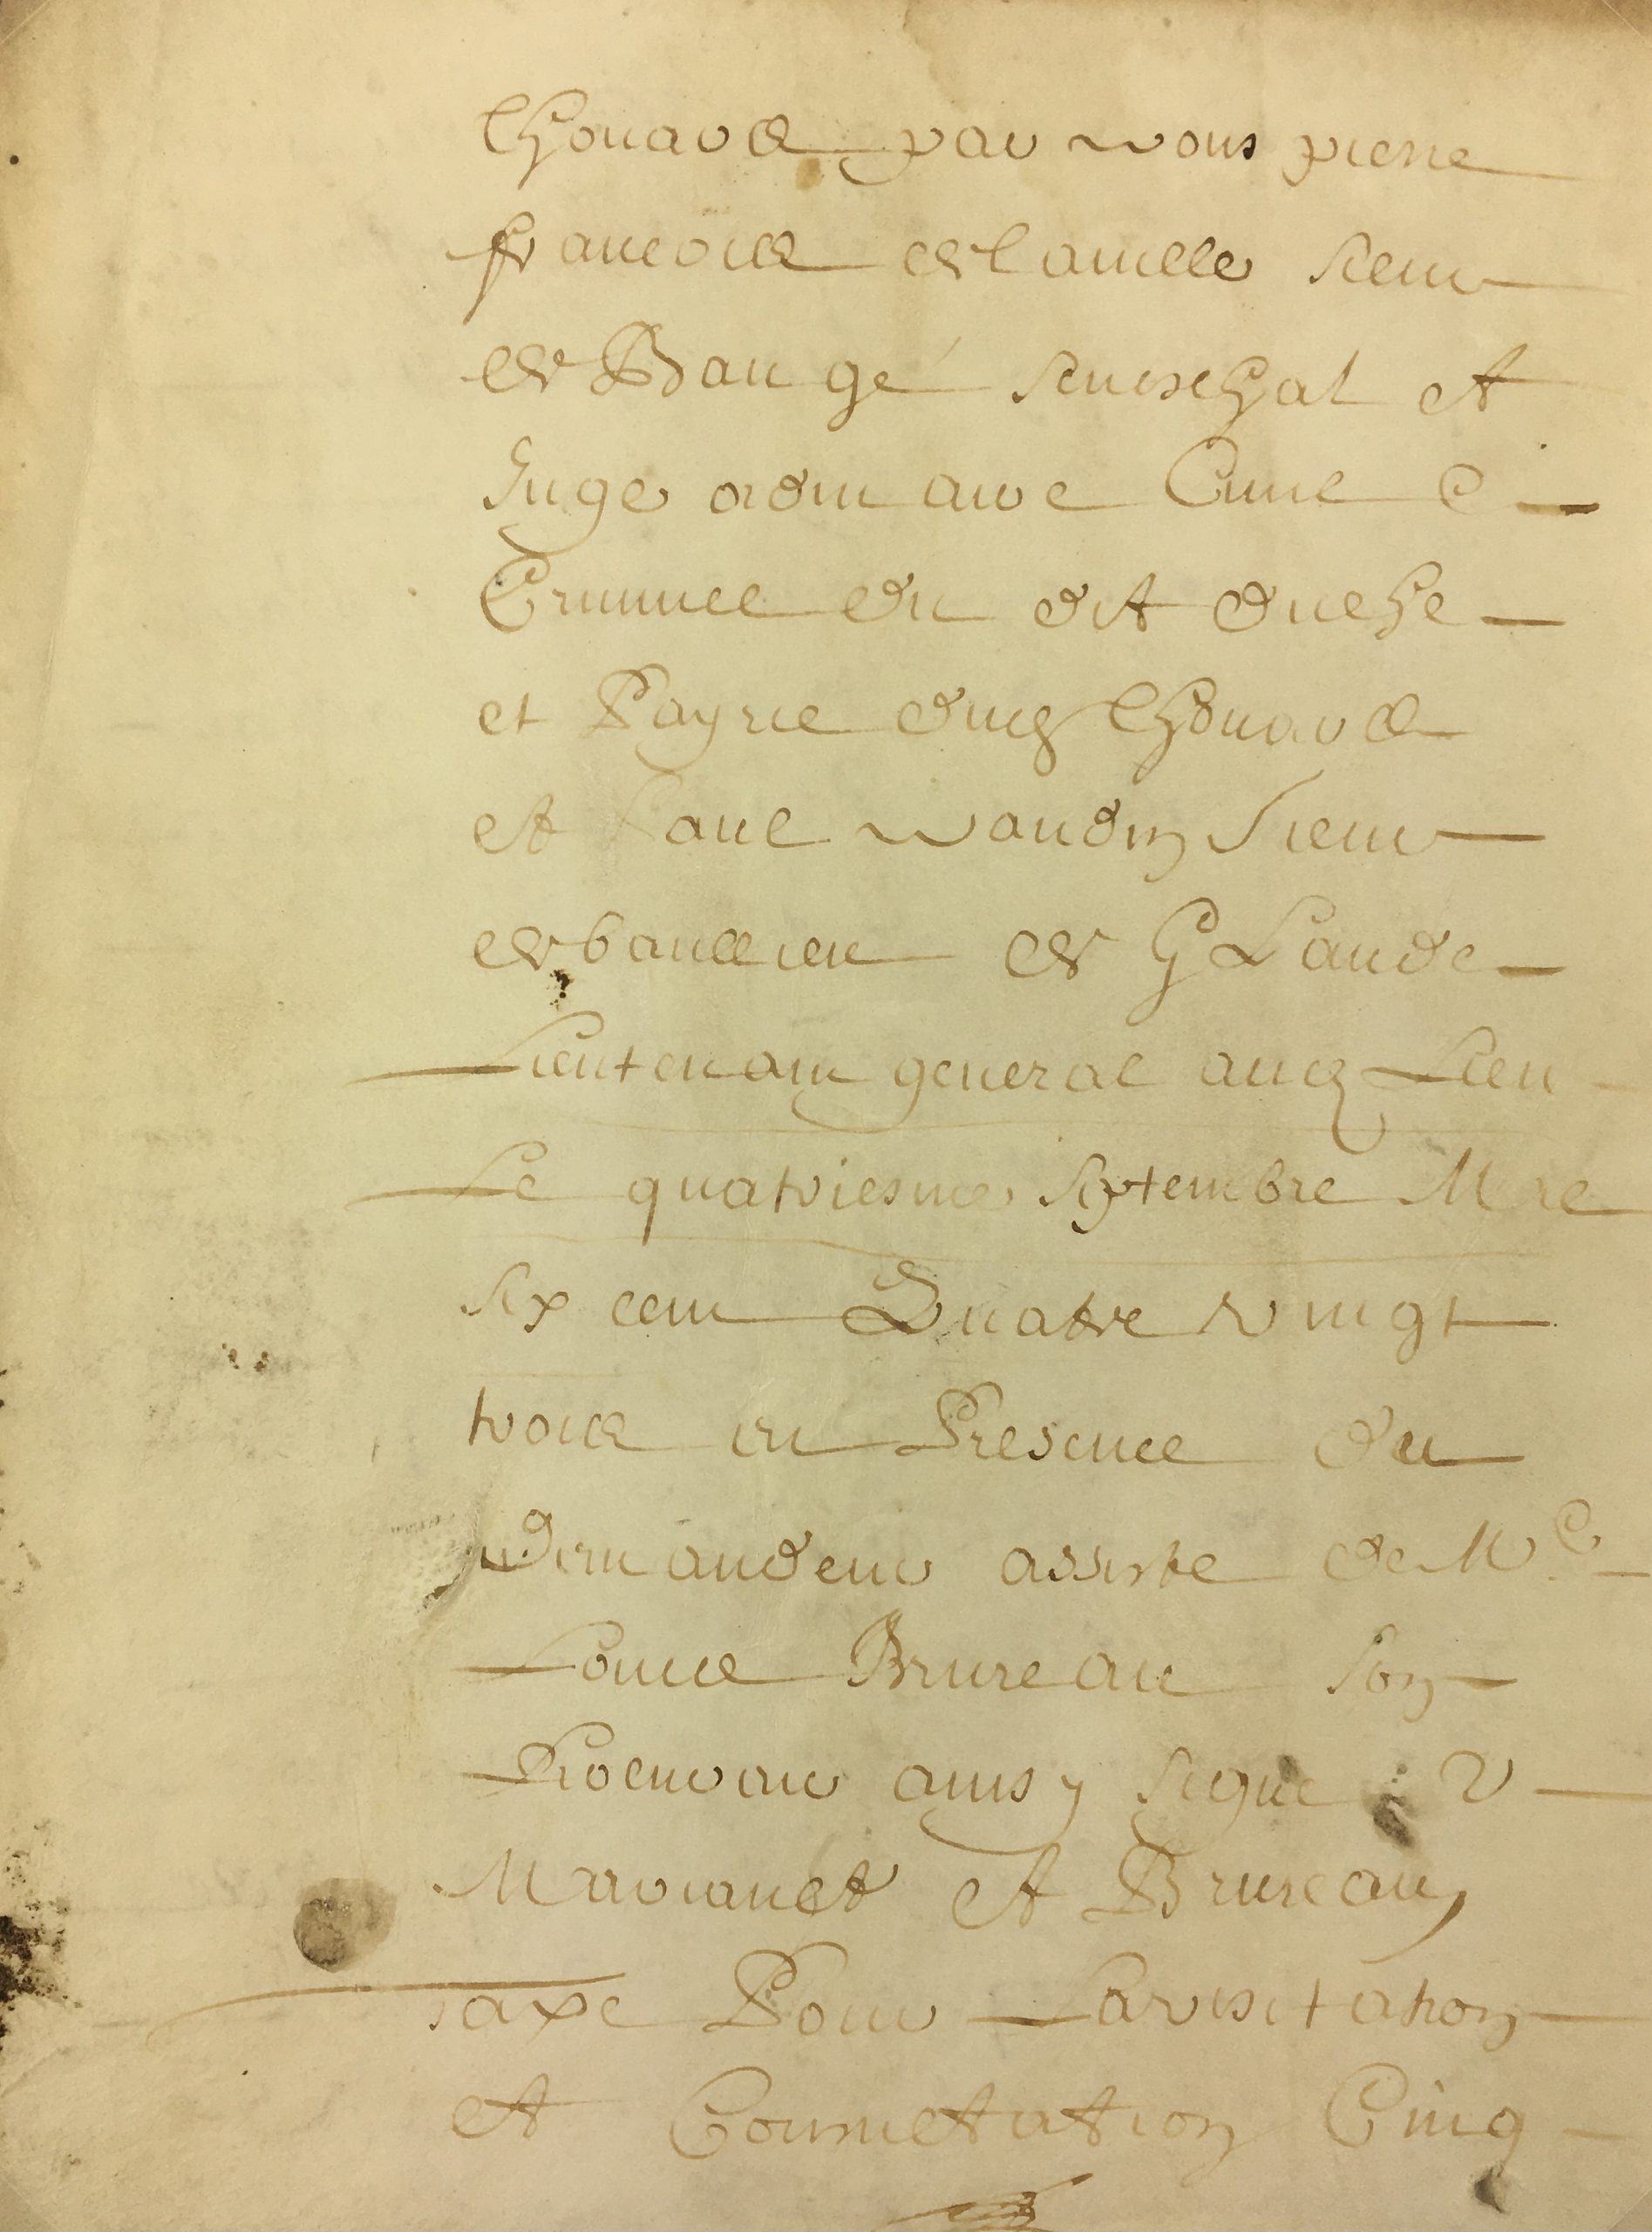 Thouars par nous pierre
francois de lauilles sieur
de Baugé seneschal et
Juge ordinaire Ciuil &
Criminel du dit duche
et Payrie dud Thouars
et Paul naudin sieur
de
Lieutenant general audt Lieu
Le quatriesme septembre Mil
six cent Quatre vingt
trois en Presence du
Demandeur assisté de Me
Louis Brureau son
Procureur ainsy signé
et Brureau
Taxe Pour La visitation
et Cinq